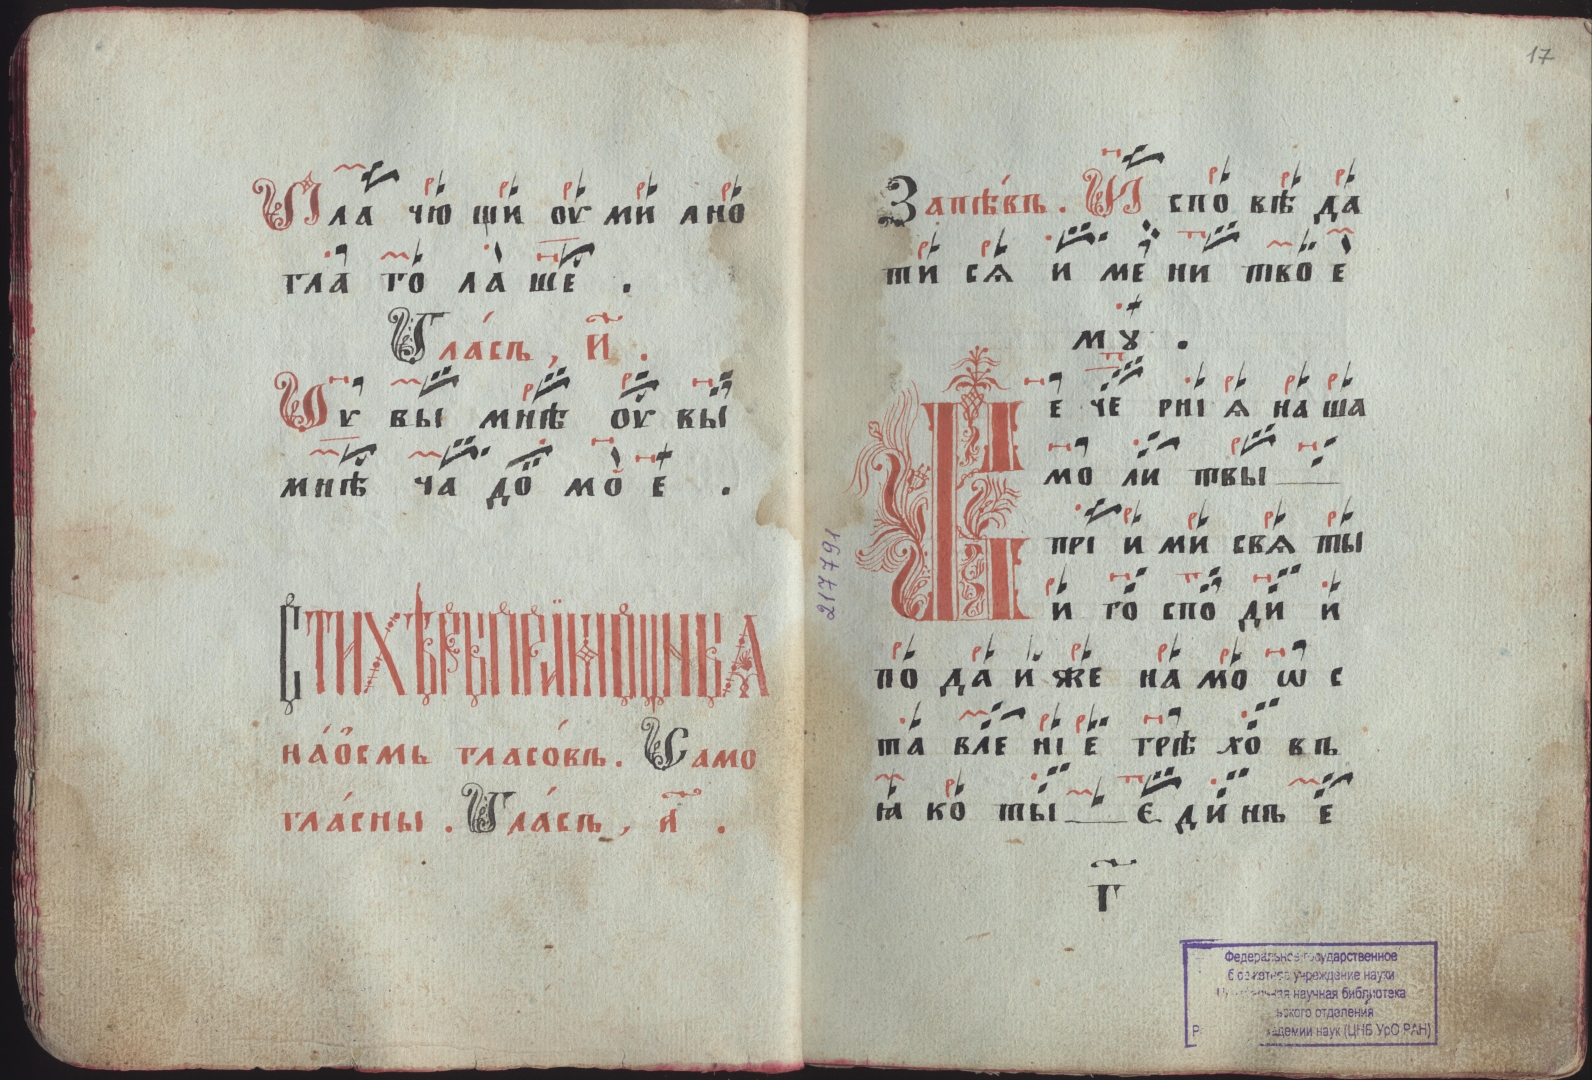 Пла чю щи оу ми лно
гла го ла ше .
Гла́съ , и҃ .
Оу вы мнѣ оу вы
мнѣ ча до мо е .
Стихѣры
на́ осмь гласо́въ . Само
гла́сны . Гла́съ , а҃ .
17
Запѣвъ . И спо вѣ да
ти ся и ме ни тво е
му .
В е че рнї я на ша
мо ли твы
прї и ми свя ты
и го спо ди и
по да и же на мо ѡ с
та вле нї е грѣ хо въ
ꙗ ко ты є ди нъ е
г҃
217791
Федеральное государственное
бюджетное учреждение науки
научная библиотека
отделения
наук (ЦНБ УрО РАН)